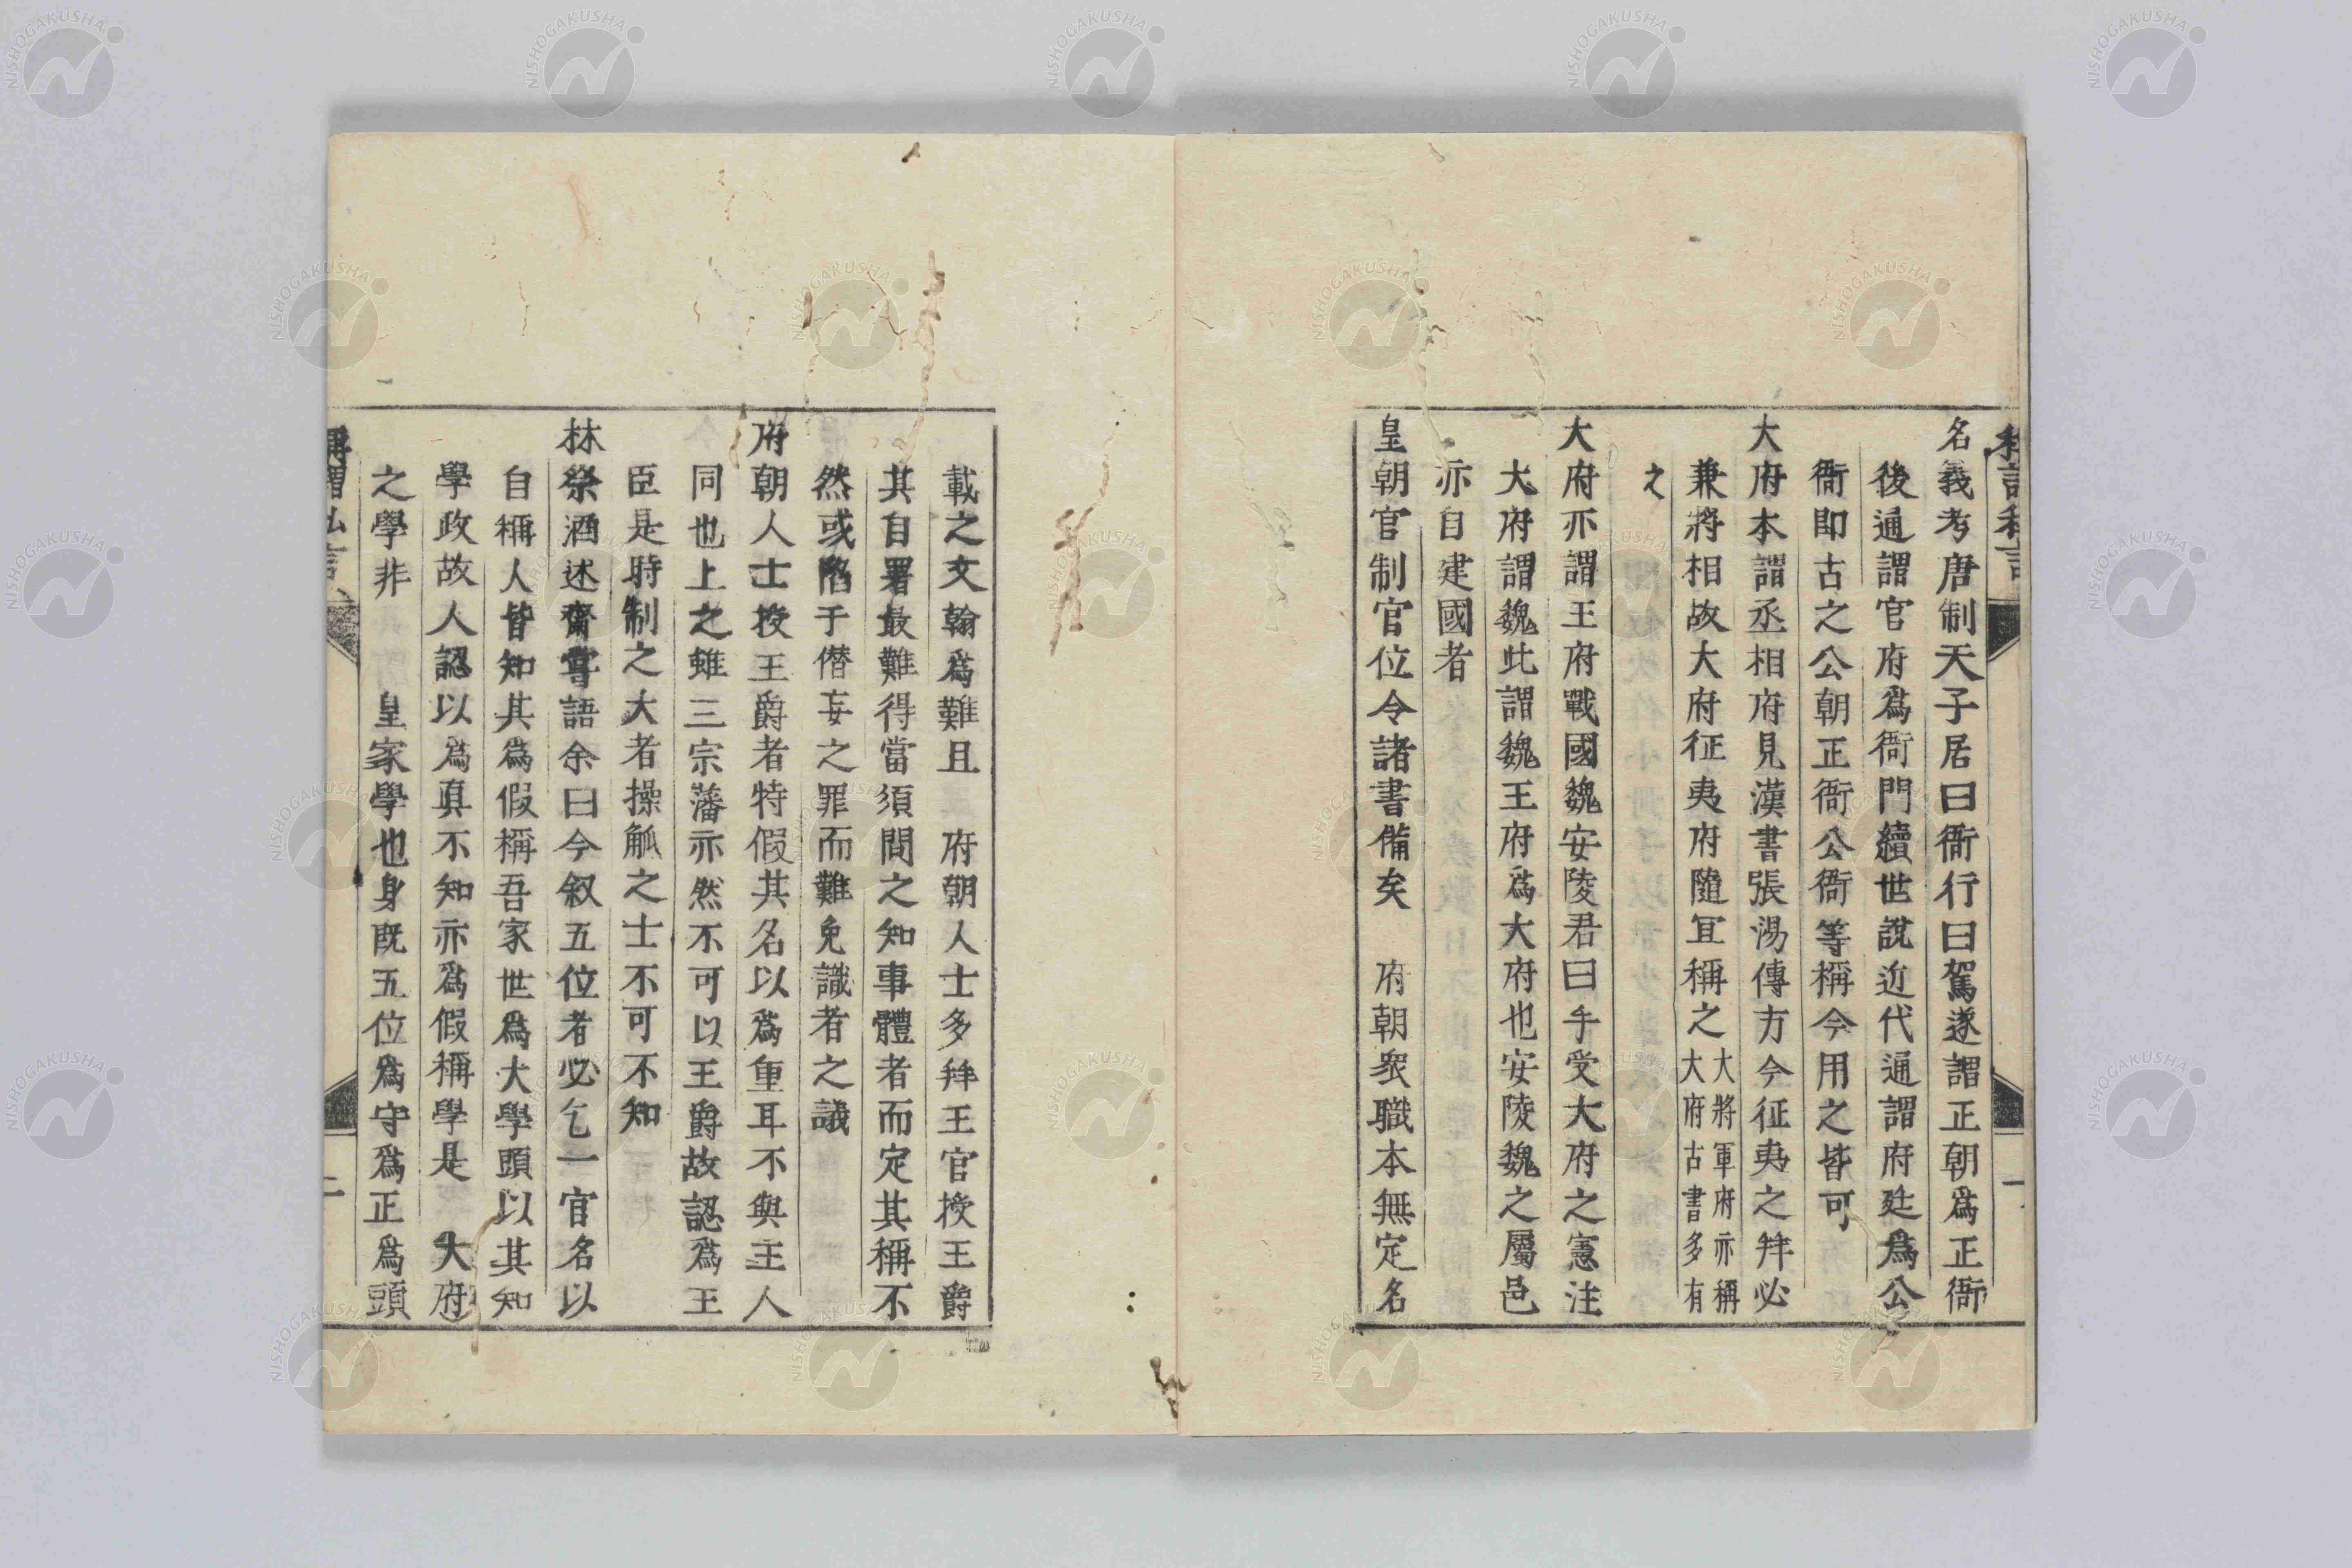 名義考唐制天子居曰衙行曰駕遂謂正朝爲正衙
後通謂官府爲衙門續世説近代通謂府廷爲公
衙即古之公朝正衙公衙等稱今用之皆可
大府本謂丞相府見漢書張湯傳方今征夷之拜必
兼將相故大府征夷府隨宜稱之大將軍府亦稱大府古書多有
之
大府亦謂王府戰國魏安陵君曰手受大府之憲注
大府謂魏此謂魏王府爲大府也安陵魏之屬邑
亦自建國者
皇朝官制官位令諸書備矣　府朝衆職本無定名
載之文翰爲難且　府朝人士多拜王官授王爵
其自署最難得當須問之知事體者而定其稱不
然或陷于僭妄之罪而難免識者之譏
府朝人士授王爵者特假其名以爲重耳不與主人
同也上之雖三宗藩亦然不可以王爵故認爲王
臣是時制之大者操觚之士不可不知
林祭酒述齋嘗語余曰今叙五位者必乞一官名以
自稱人皆知其爲假稱吾家世爲大學頭以其知
學政故人認以爲眞不知亦爲假稱學是　大府
之學非　皇家學也身既五位爲守爲正爲頭
稱謂私言
二
NISHOGAKUSHA